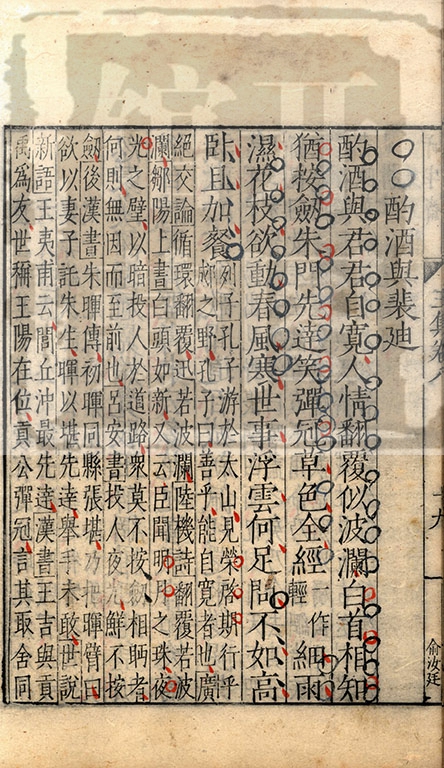 酌酒與裴廸
酌酒與君君自寛人情翻覆似波瀾白首相知
猶按劒朱門先達笑彈冠草色全經一作輕細雨
濕花枝欲動春風寒世事浮雲何足問不如高
臥且加餐列子孔子游於太山見榮啓期行乎
郕之野孔子曰善乎能自寛者也廣
絶交論循環翻覆迅若波瀾陸機詩翻覆若波
瀾鄒陽上書白頭如新又云臣聞明月之珠夜
光之璧以暗投人於道路衆莫不按劒相眄者
何則無因而至前也呂安書投人夜光鮮不按
劒後漢書朱暉傳初暉同縣張堪乃把暉臂曰
欲以妻子託朱生暉以堪先達舉手未敢世說
新語王夷甫云閭丘沖最先達漢書王吉與貢
禹爲友世稱王陽在位貢公彈冠言其取舍同
俞汝廷